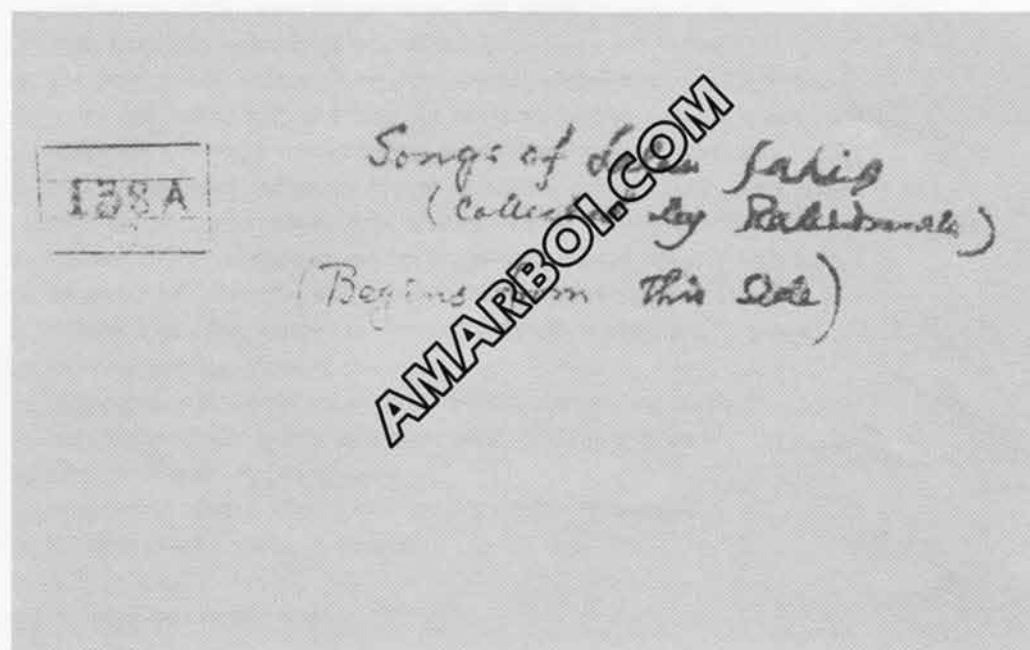 138A
Songs of Lalan Fakir
(Collected by Rabindranath)
(Begins from this Side)
AMARBOI.COM